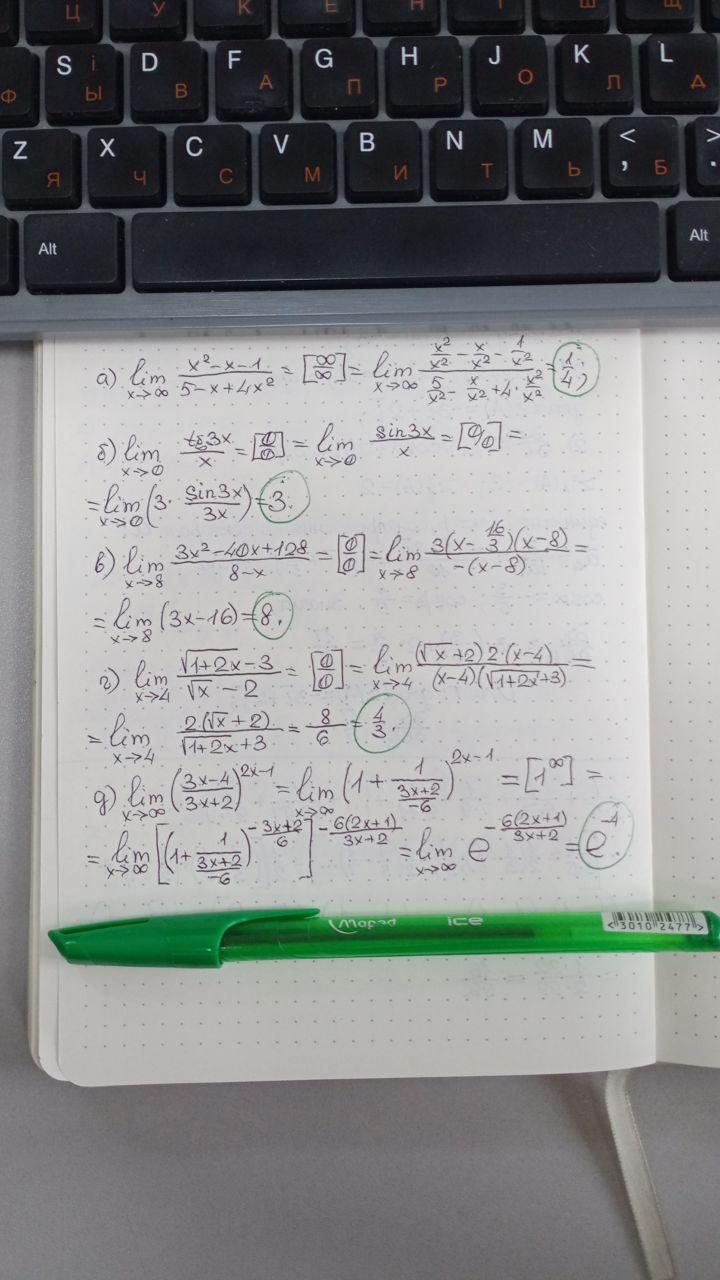 Ц У К Е Н Ш Щ
Ф S і Ы D В F А G П H Р J О K Л L Д
Z Я X Ч C С V М B И N Т M Ь < , Б >
Alt Alt
а) lim x→∞ (x²-x-1)/(5-x+4x²) = [∞/∞] = lim x→∞ (x²/x² - x/x² - 1/x²)/(5/x² - x/x² + 4·x²/x²) = 1/4;
б) lim x→0 tg3x/x = [0/0] = lim x→0 sin3x/x = [0/0] =
= lim x→0 (3· sin3x/3x) = 3.
в) lim x→8 (3x²-40x+128)/(8-x) = [0/0] = lim x→8 3(x-16/3)(x-8)/-(x-8) =
= lim x→8 (3x-16) = 8.
г) lim x→4 (√1+2x-3)/(√x-2) = [0/0] = lim x→4 (√x+2)2·(x-4)/(x-4)(√1+2x+3) =
= lim x→4 2(√x+2)/(√1+2x+3) = 8/6 = 4/3.
д) lim x→∞ ((3x-4)/(3x+2))^(2x-1) = lim x→∞ (1+1/((3x+2)/-6))^(2x-1) = [1^∞] =
= lim x→∞ [(1+1/((3x+2)/-6))^(-(3x+2)/6)]^(-6(2x+1)/(3x+2)) = lim x→∞ e^(-6(2x+1)/(3x+2)) = e^-4.
Maped ice <3010 2477>